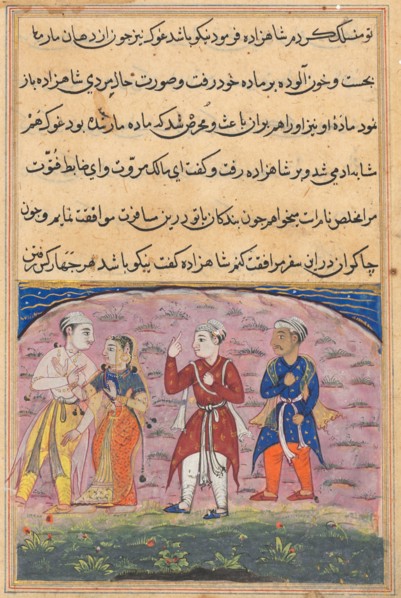 تو منسلک کردم شاهزاده فرمود نیکو باشد غوک نیز چون از دهان مار
بجست و خون آلوده بر ماده خود رفت و صورت حال مردی شاهزاده باز
نمود مادهٔ او نیز او را هم بران باعث و محرض شد که ماده مار شده بود غوک هم
شابه ادمی شد و بر شاهزاده رفت و گفت ای مالک مروت و ای ضابط فتوت
مرا مخلص نام است میخواهم چون بندکان با تو درین مسافرت موافقت نمایم و چون
چاکران درین سفر مرافقت کنم شاهزاده گفت نیکو باشد هر چهار کس رفتن